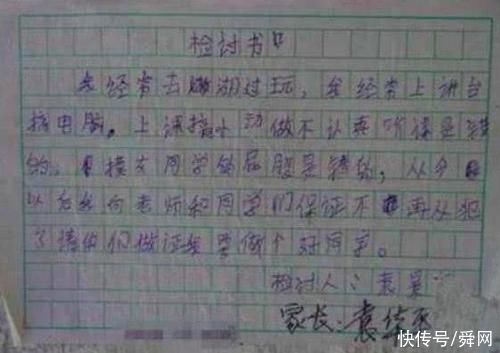 检讨书
我经常去湖边玩，我经常上讲台
按电脑。上课搞小动做不认真听课是错
的。摸女同学的屁股是错的，从今
以后我向老师和同学们保证不再从犯
了请你们做证我要做个好同学。
检讨人：袁昊
家长：袁
快传号/舜网